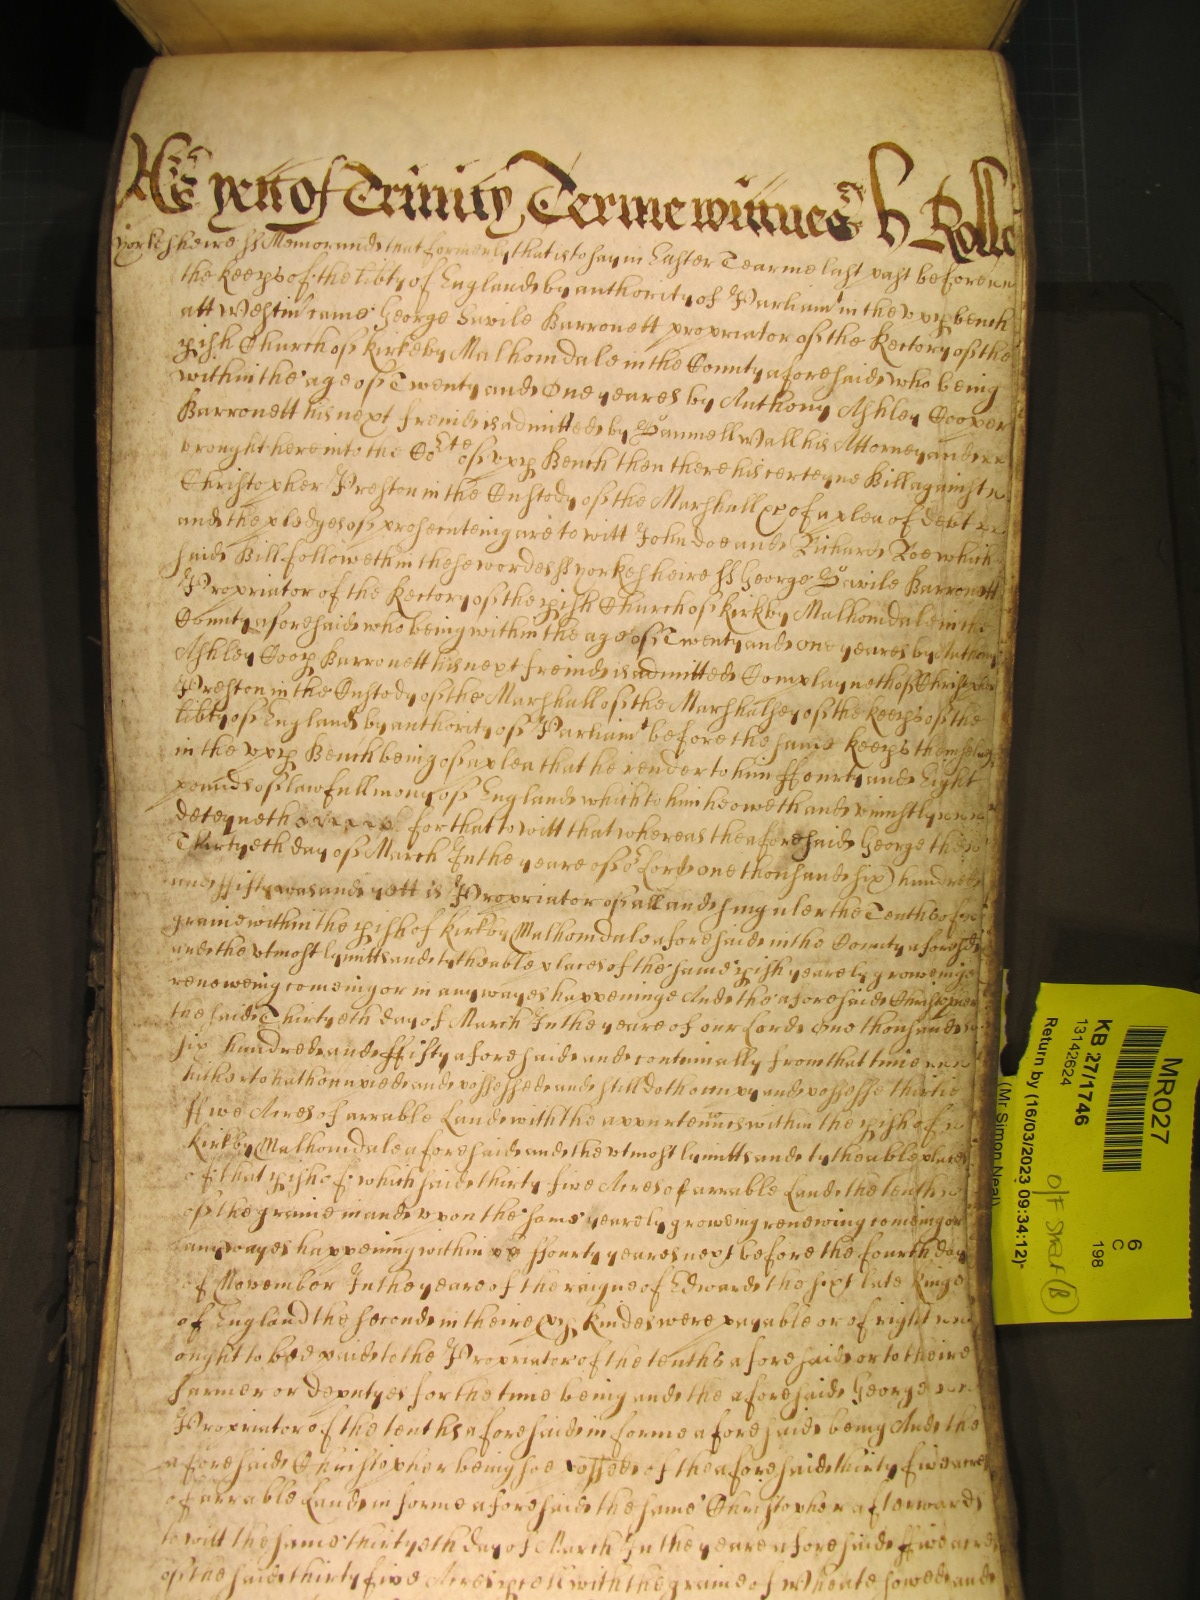 As yett of Trinity Terme witnes H Rolle
Yorkesheire ss Memorand that formerly that is to say in Easter Tearme last past before
the keeps of the libty of England by authority of Parliamt in the upp bench
att Westm came George Savile Barronett propriator of the Rectory of the
pish Church of Kirkeby Malhomdale in the County aforesaid who being
within the age of Twenty and One yeares by Anthony Ashley Cooper
Barronett his next freind is admitted by Sammell Wall his Attorney and
brought here into the Cote of upp Bench then there his certeyne Bill against
Christopher Preston in the Custody of the Marshall &c of a plea of debt
and the pledges of prosecuteing are to witt John doe and Richard Roe which
said Bill followeth in these wordes ss yorkesheire ss George Savile Barronett
Propriator of the Rectory of the pish Church of Kirkby Malhomdale in the
County aforesaid who being within the age of Twenty and one yeares by Anthony
Ashley Coop Barronett his next freind is admitted Complayneth of Christopher
Preston in the Custody of the Marshall of the Marshalsey of the keeps of the
libty of England by authority of Parliamt before the same keeps themselves
in the upp Bench being of a plea that he render to him ffourty and Eight
pounds of lawfull mony of England which to him he oweth and uniustly
deteyneth for that to witt that whereas the aforesaid George the
Thirtyeth day of March In the yeare of or Lord one thousand six hundred
and ffifty was and yett is Propriator of all and singuler the Tenthes of
graine within the pish of Kirkby Malhomdale aforesaid in the County aforesd
and the utmost lymitts and tytheable places of the same pish yearely groweinge
reneweing comeing or in any wayes happeninge And the aforesaid Christopher
the said Thirtyeth day of March In the yeare of our Lord One thousand
six hundred and ffifty aforesaid and continually from that time
hitherto hath occupied and possessed and still doth occupy and possesse thirtie
ffive Acres of arrable Land with the appurtenncs within the pish of
Kirkby Malhomdale aforesaid and the utmost lymitts and tytheable places
of that pish of which said thirty five Acres of arrable Land the tenth
of the graine in and upon the same yearely groweing renewing comeing or
any wayes happening within ffourty yeares next before the fourth day
of November In the yeare of the raigne of Edward the sixt late Kinge
of England the second in theire pp kindes were payable or of right
ought to bee paid to the Propriator of the tenths aforesaid or to theire
farmer or deputyes for the time being and the aforesaid George
Propriator of the tenths aforesaid in forme aforesaid being And the
aforesaid Christopher being soe possed of the aforesaid thirty five acres
of arrable Land in forme aforesaid the same Christopher afterwards
to witt the same thirtyeth day of March In the yeare aforesaid ffive acres
of the said thirty five Acres pcell with the graine of Wheate sowed and
MR027
KB 27/1746
13142624
Return by (16/03/2023 09:34:12)-
(Mr Simon Neal)
6
C
198